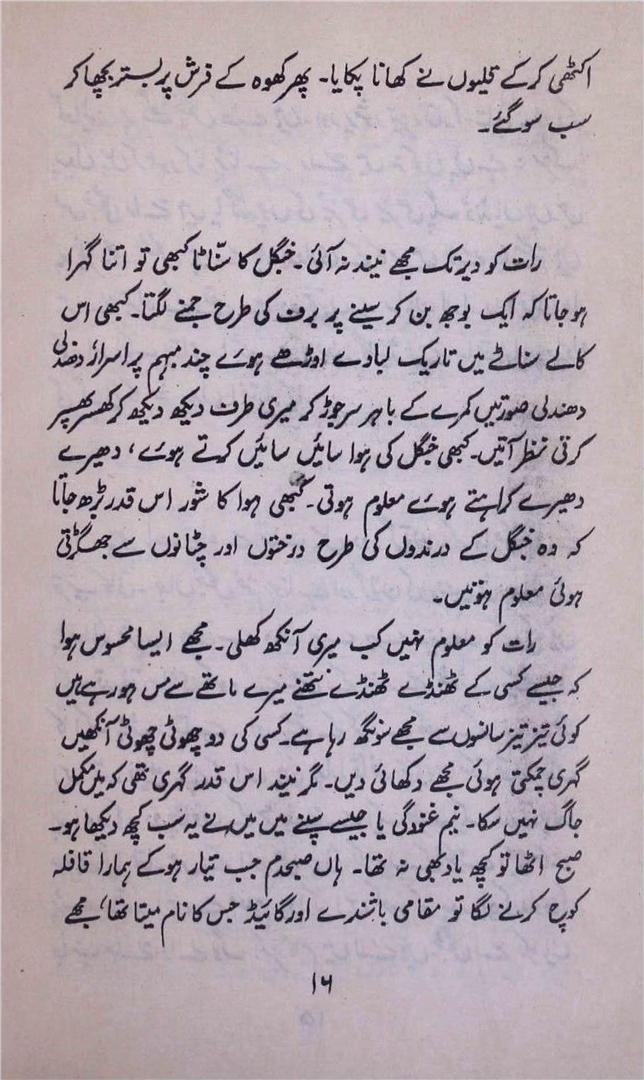 اکٹھی کرکے قلیوں نے کھانا پکایا۔ پھر کھوہ کے فرش پر بستر بچھا کر
سب سو گئے۔
رات کو دیر تک مجھے نیند نہ آئی۔ جنگل کا سنّاٹا کبھی تو اتنا گہرا
ہو جاتا کہ ایک بوجھ بن کر سینے پر برف کی طرح جمنے لگتا۔ کبھی اس
کالے سناٹے میں تاریک لبادے اوڑھے ہوئے چند مبہم پراسرار دھندلی
دھندلی صورتیں کمرے کے باہر سر جوڑ کر میری طرف دیکھ دیکھ کر کھسر پھسر
کرتی نظر آتیں۔ کبھی جنگل کی ہوا سائیں سائیں کرتے ہوئے، دھیرے
دھیرے کراہتے ہوئے معلوم ہوتی۔ کبھی ہوا کا شور اس قدر بڑھ جاتا
کہ وہ جنگل کے درندوں کی طرح درختوں اور چٹانوں سے جھگڑتی
ہوئی معلوم ہوتیں۔
رات کو معلوم نہیں کب میری آنکھ کھلی۔ مجھے ایسا محسوس ہوا
کہ جیسے کسی کے ٹھنڈے ٹھنڈے نتھنے میرے ماتھے سے مس ہو رہے ہیں
کوئی تیز تیز سانسوں سے مجھے سونگھ رہا ہے۔ کسی کی دو چھوٹی چھوٹی آنکھیں
گہری چمکتی ہوئی مجھے دکھائی دیں۔ مگر نیند اس قدر گہری تھی کہ میں مکمل
جاگ نہیں سکا۔ نیم غنودگی یا جیسے سپنے میں میں نے یہ سب کچھ دیکھا ہو۔
صبح اٹھا تو کچھ یاد بھی نہ تھا۔ ہاں صبحدم جب تیار ہو کے ہمارا قافلہ
کوچ کرنے لگا تو مقامی باشندے اور گائیڈ جس کا نام میتا تھا، مجھے
۱۶